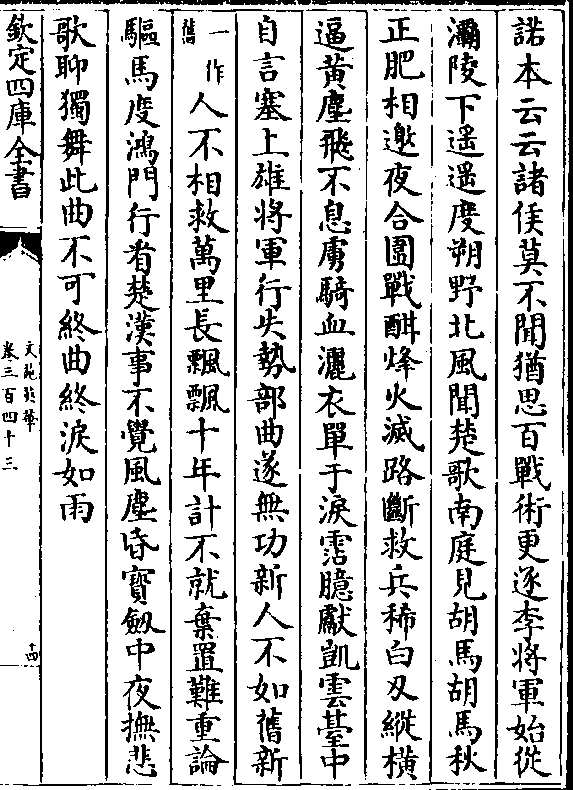 諾本云云諸侯莫不聞猶思百戰術更逐李將軍始從
灞陵下遥遥度朔野北風聞楚歌南庭見胡馬胡馬秋
正肥相邀夜合圍戰酣烽火滅路斷救兵稀白刄縱橫
逼黄塵飛不息虜騎血灑衣單于淚霑臆獻凱雲臺中
自言塞上雄將軍行失勢部曲遂無功新人不如舊新
一作舊人不相救萬里長飄飄十年計不就棄置難重論
驅馬度鴻門行看楚漢事不覺風塵昏寶劔中夜撫悲
歌聊獨舞此曲不可終曲終淚如雨
欽定四庫全書
文苑英華
卷三百四十三
十四